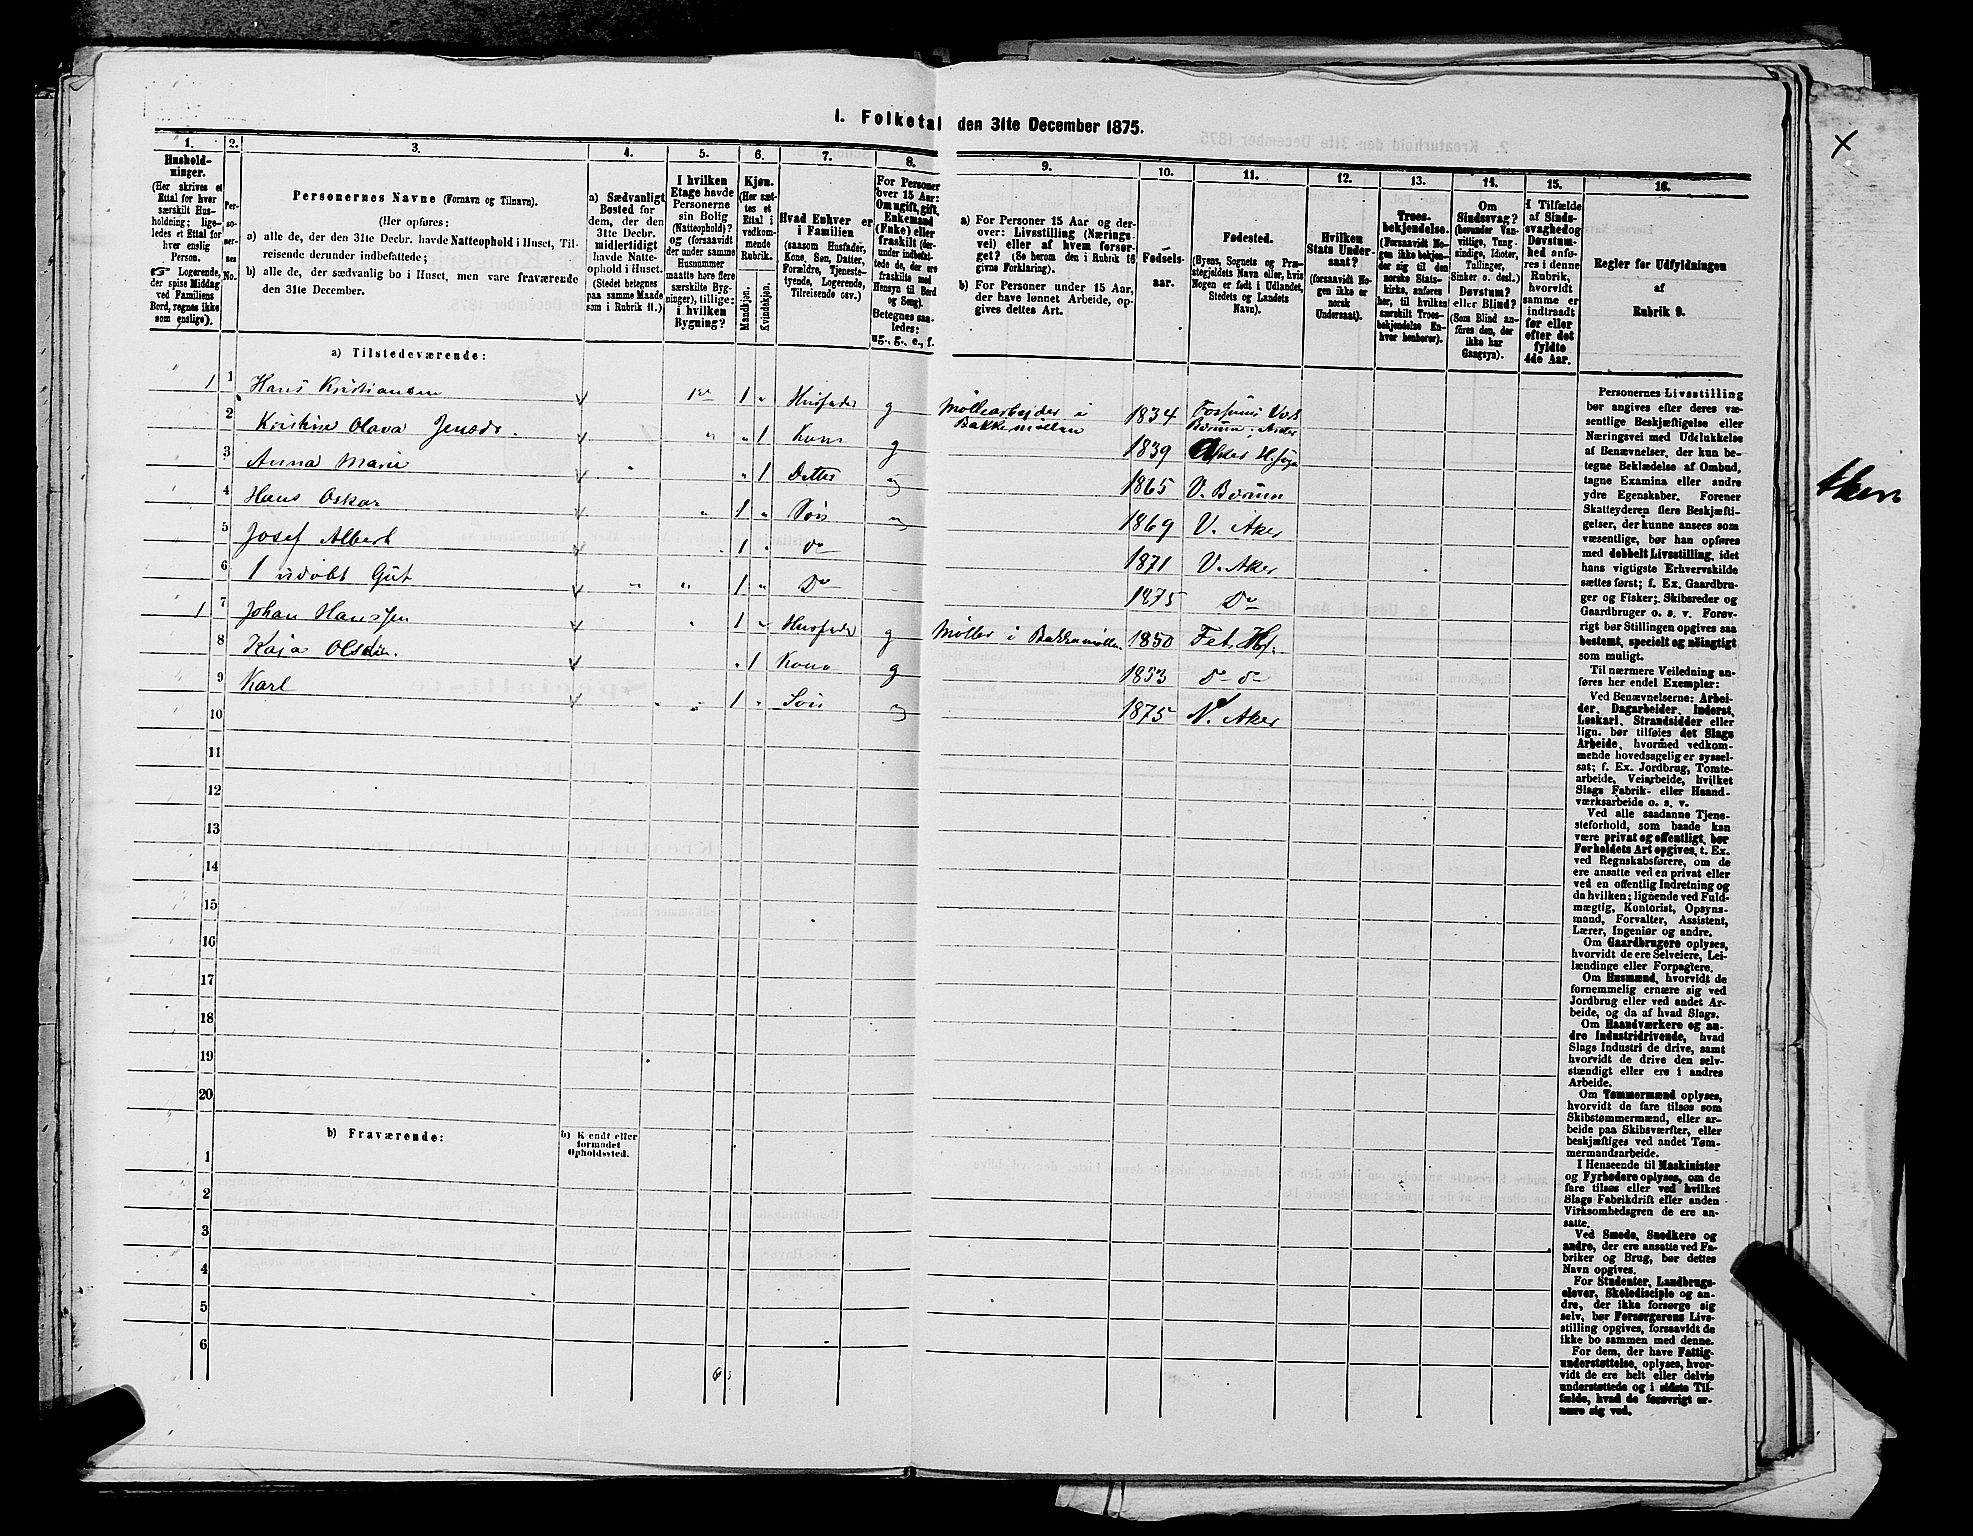 1. Folketal den 31te December 1875.
1.
2.
3.
4.
5.
6.
7.
8.
9.
10.
11.
12.
13.
14.
15.
16.
Hushold-
ninger.
(Her skrives et
Ettal for hver
særskilt Hus-
holdning; lige-
ledes et Ettal for
hver enslig
Person.
Logerende,
der spise Middag
ved Familiens
Bord, regnes ikke
som enslige).
Per-
so-
ner-
nes
No.
Personernes Navne (Fornavn og Tilnavn).
(Her opføres:
a) alle de, der den 31te Decbr. havde Natteophold i Huset, Til-
reisende derunder indbefattede;
b) alle de, der sædvanlig bo i Huset, men vare fraværende
den 31te December.
a) Sædvanligt
Bosted for
dem, der den
31te Decbr.
midlertidigt
havde Natte-
ophold i Huset.
(Stedet betegnes
paa samme Maade
som i Rubrik 11.)
I hvilken
Etage havde
Personerne
sin Bolig
(Natteophold)?
og (forsaavidt
der under samme
Husnummer
maatte høre flere
særskilte Byg-
ninger), tillige:
i hvilken
Bygning?
Kjøn.
(Her sæt-
tes et
Ettal i
vedkom-
mende
Rubrik.
Mandkjøn.
Kvindekjøn.
Hvad Enhver er
i Familien
(saasom Husfader,
Kone, Søn, Datter,
Forældre, Tjeneste-
tyende, Logerende,
Tilreisende osv.)
For Personer
over 15 Aar:
Om ugift, gift,
Enkemand
(Enke) eller
fraskilt (der-
under indbefat-
tede de, der ere
fraskilte med
Hensyn til Bord
og Seng).
Betegnes saa-
ledes:
ug., g., e., f.
a) For Personer 15 Aar og der-
over: Livsstilling (Nærings-
vei) eller af hvem forsør-
get? (Se herom den i Rubrik 16
givne Forklaring).
b) For Personer under 15 Aar,
der have lønnet Arbeide, op-
gives dettes Art.
Fødsels-
aar.
Fødested.
(Byens, Sognets og Præ-
stegjeldets Navn eller, hvis
Nogen er født i Udlandet,
Stedets og Landets
Navn).
Hvilken
Stats Under-
saat?
(forsaavidt No-
gen ikke er
norsk
Undersaat).
Troes-
bekjendelse.
(Forsaavidt No-
gen ikke bekjen-
der sig til den
norske Stats-
kirke, anføres
her, til hvilken
særskilt Troes-
bekjendelse En-
hver henhører).
Om
Sindssvag?
(herunder Van-
vittige, Tung-
sindige, Idioter,
Tullinger,
Sinker o. desl.)
Døvstum?
eller Blind?
(Som Blind an-
føres den, der
ikke har
Gangsyn).
I Tilfælde
af Sinds-
svaghed og
Døvstum-
hed anfø-
res i denne
Rubrik,
hvorvidt
samme er
indtraadt
før eller
efter det
fyldte
4de Aar.
Regler for Udfyldningen
af
Rubrik 9.
a) Tilstedeværende:
1 1 Hans Kristiansen 1 Husfader g Møllearbejder i Bakkemøllen 1834
2 Kristine Olava 1 Kone g 1839
3 Anna Marie 1 Datter ug 1865 V. Bærum
4 Hans Oskar 1 Søn ug 1869 V. Aker
5 Josef Albert 1 do 1871 V. Aker
6 1 udøbt Gut 1 Do 1875 Do
1 7 Johan Hanssen 1 Husfader g Møller i Bakkemøllen 1850 Fet
8 Kaja Olsdtr. 1 Kone g 1853 do do
9 Karl 1 Søn ug 1875 V. Aker
10
11
12
13
14
15
16
17
18
19
20
b) Fraværende:
b) Kendt eller
formodet
Opholdssted.
1
2
3
4
5
6
Personernes Livsstilling
bør angives efter deres væ-
sentlige Beskjæftigelse eller
Næringsvei med Udelukkelse
af Benævnelser, der kun be-
tegne Beklædelse af Ombud,
tagne Examina eller andre
ydre Egenskaber. Forener
Skatteyderen flere Beskjæfti-
gelser, der kunne ansees som
væsentlige, bør han opføres
med dobbelt Livsstilling, idet
hans vigtigste Erhvervskilde
sættes først; f. Ex. Gaardbru-
ger og Fisker; Skibsreder og
Gaardbruger o. s. v. Forøv-
rigt bør Stillingen opgives saa
bestemt, specielt og nøiagtigt
som muligt.
Til nærmere Veiledning an-
føres her endel Exempler:
Ved Benævnelserne: Arbei-
der, Dagarbeider, Inderst,
Løskarl, Strandsidder eller
lign. bør tilføies det Slags
Arbeide, hvormed vedkom-
mende hovedsagelig er syssel-
sat; f. Ex. Jordbrug, Tomte-
arbeide, Veiarbeide, hvilket
Slags Fabrik- eller Haand-
værksarbeide o. s. v.
Ved alle saadanne Tjene-
steforhold, som baade kan
være privat og offentligt, bør
Forholdets Art opgives, t. Ex.
ved Regnskabsførere, om de
ere ansatte ved en privat eller
ved en offentlig Indretning og
da hvilken; lignende ved Fuld-
mægtig, Kontorist, Opsyns-
mand, Forvalter, Assistent,
Lærer, Ingeniør og andre.
Om Gaardbrugere oplyses,
hvorvidt de ere Selveiere, Lei-
lændinge eller Forpagtere.
Om Husmænd, hvorvidt de
fornemmelig ernære sig ved
Jordbrug eller ved andet Ar-
beide, og da af hvad Slags.
Om Haandværkere og an-
dre Industridrivende, hvad
Slags Industri de drive, samt
hvorvidt de drive den selv-
stændigt eller ere i andres
Arbeide.
Om Tømmermænd oplyses,
hvorvidt de fare tilsøs som
Skibstømmermænd, eller ar-
beide paa Skibsværfter, eller
beskjæftiges ved andet Tøm-
mermandsarbeide.
I Henseende til Maskinister
og Fyrbødere oplyses, om de
fare tilsøs eller ved hvilket
Slags Fabrikdrift eller anden
Virksomhedsgren de ere an-
satte.
Ved Smede, Snedkere og
andre, der ere ansatte ved Fa-
briker og Brug, bør dettes
Navn opgives.
For Studenter, Landbrugs-
elever, Skoledisciple og an-
dre, der ikke forsørge sig
selv, bør Forsørgerens Livs-
stilling opgives, forsaavidt de
ikke bo sammen med denne.
For dem, der have Fattig-
understøttelse, oplyses, hvor-
vidt de ere helt eller delvis
understøttede og i sidste Til-
fælde, hvad de forøvrigt er-
nære sig ved.